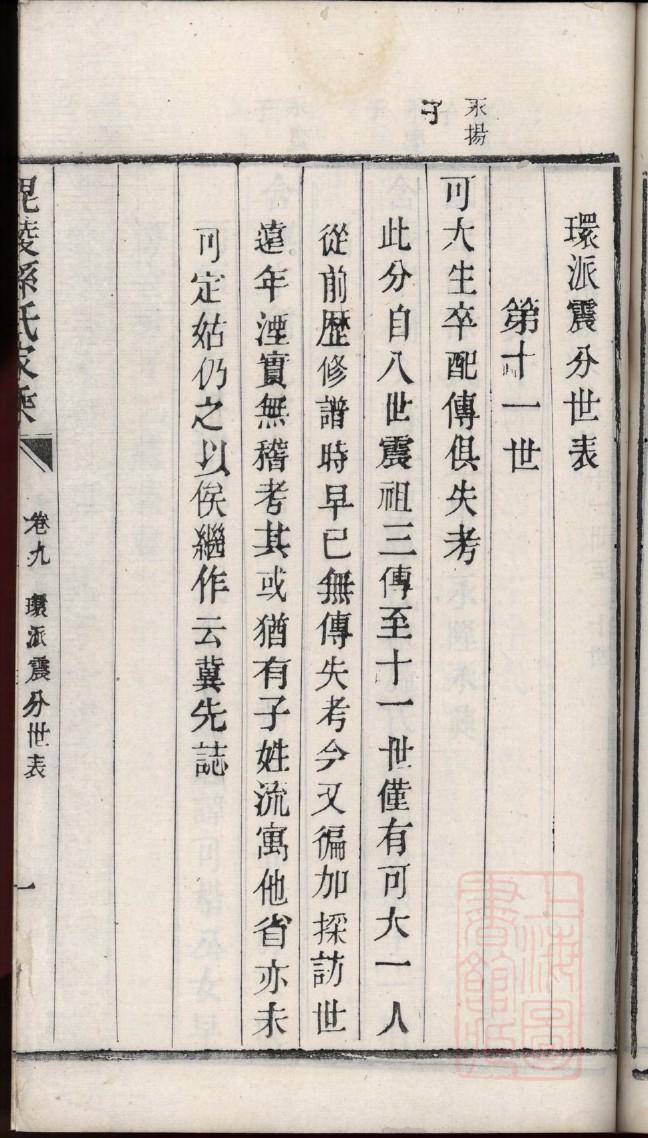 永揚
子
環派震分世表
第十一世
可大生卒配傳俱失考
此分自八世震祖三傳至十一世僅有可大一人
從前歷修譜時早已無傳失考今又徧加採訪世
遠年湮實無稽考其或猶有子姓流寓他省亦未
可定姑仍之以俟繼作云冀先誌
毘陵孫氏家乘
卷九
環派震分世表
一
上海圖
書館藏